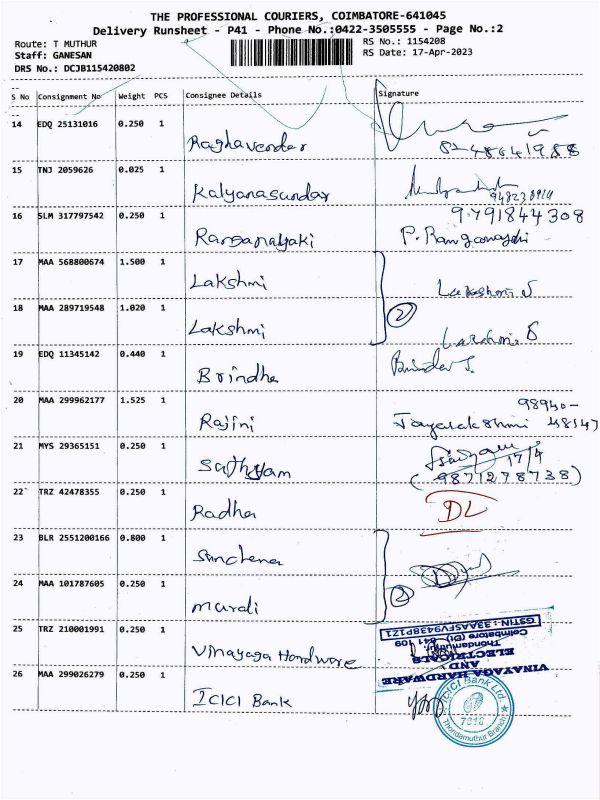 THE PROFESSIONAL COURIERS, COIMBATORE-641045
Delivery Runsheet - P41 - Phone No.:0422-3505555 - Page No.:2
Route: T MUTHUR
RS No.: 1154208
Staff: GANESAN
RS Date: 17-Apr-2023
DRS No.: DCJB115420802
S No Consignment No Weight PCS Consignee Details Signature
14 EDQ 25131016 0.250 1 Raghavendar
15 TNJ 2059626 0.025 1 Kalyanasundar
16 SLM 317797542 0.250 1 Ranganayaki 9791844308
P. Ranganayaki
17 MAA 568800674 1.500 1 Lakshmi
18 MAA 289719548 1.020 1 Lakshmi
2
19 EDQ 11345142 0.440 1 Brindha
20 MAA 299962177 1.525 1 Rajini 98940-
21 MYS 29365151 0.250 1 Sathyam 17/4
(9871278738)
22 TRZ 42478355 0.250 1 Radha DL
23 BLR 2551200166 0.800 1
24 MAA 101787605 0.250 1 Murali
2
25 TRZ 210001991 0.250 1 Vinayaga Hardware
VINAYAGA HARDWARE
AND
ELECTRICALS
Thondamuthur,
Coimbatore (Dt) 641 109
GSTIN : 33AASFV9438P1Z1
26 MAA 299026279 0.250 1 ICICI Bank
ICICI Bank Ltd.
7618
Thondamuthur Branch